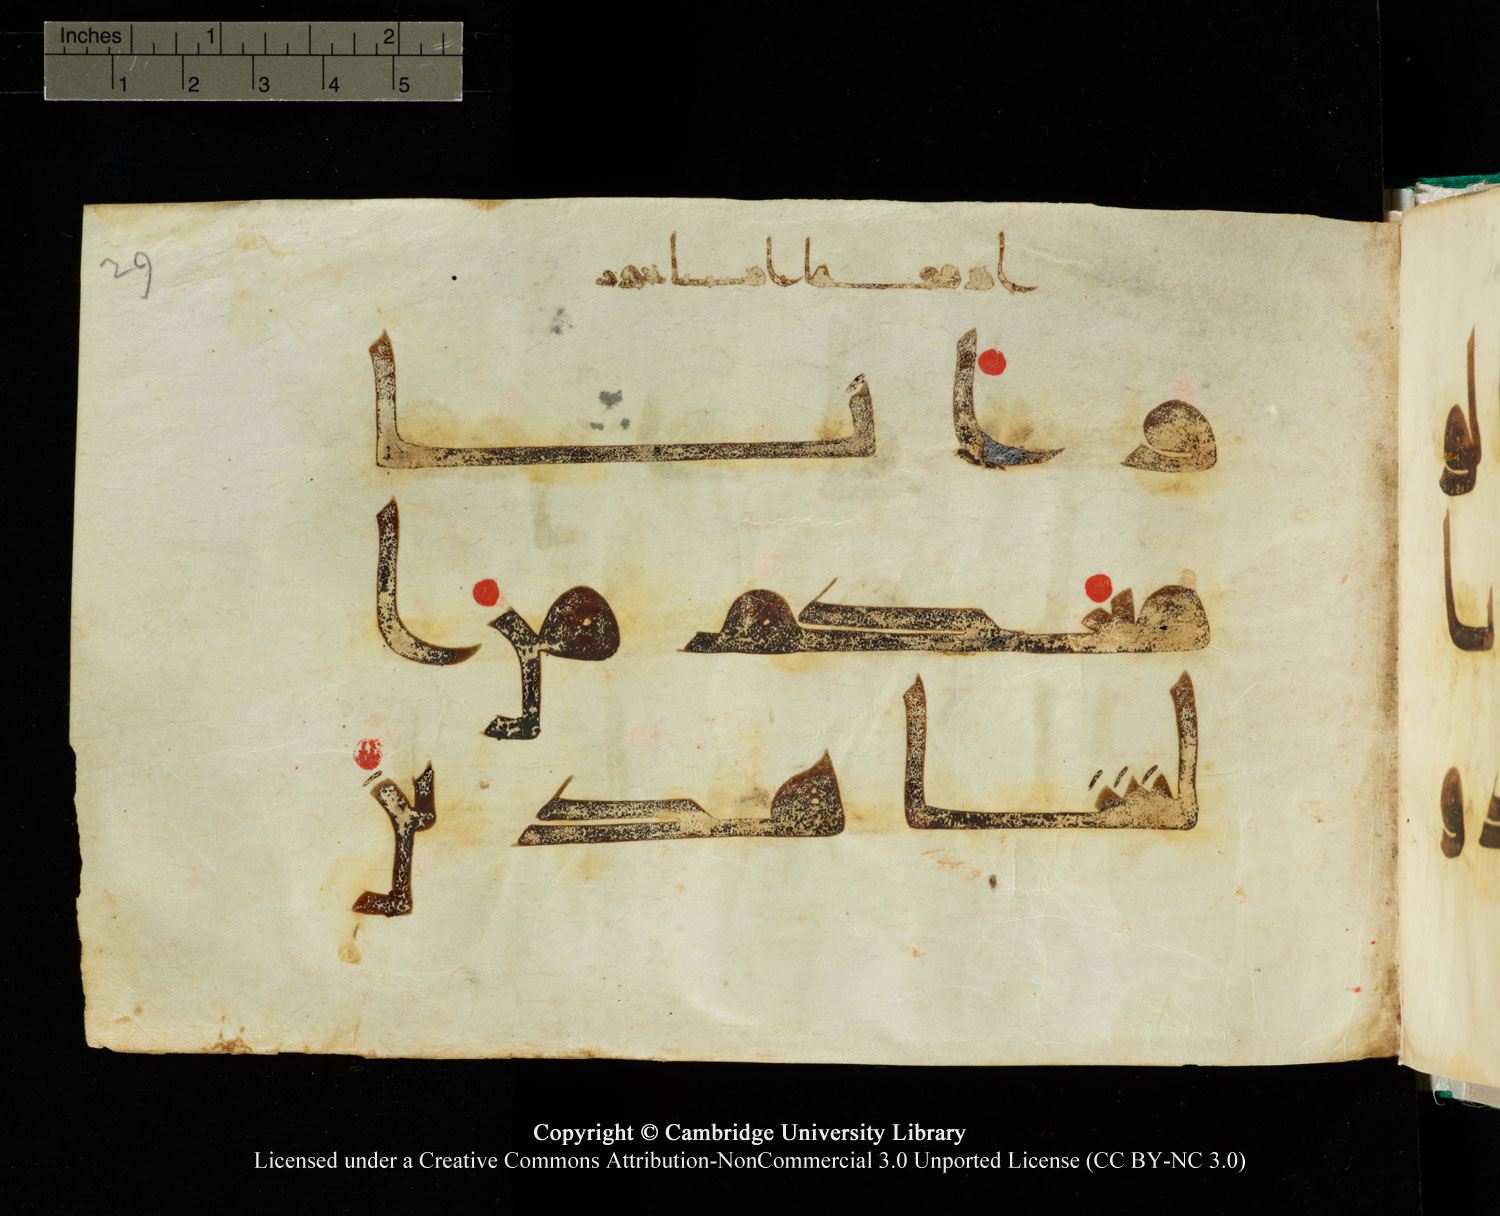 Inches 1 2
1 2 3 4 5
29
وانا
معكم من ا
لشاهدين
Copyright © Cambridge University Library
Licensed under a Creative Commons Attribution-NonCommercial 3.0 Unported License (CC BY-NC 3.0)